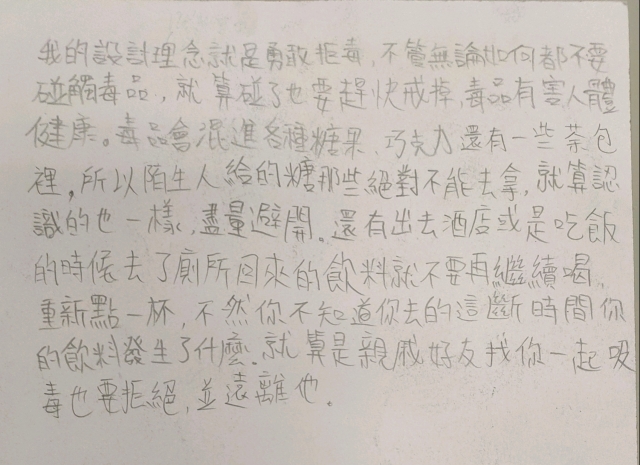 我的設計理念就是勇敢拒毒,不管無論如何都不要
碰觸毒品,就算碰了也要趕快戒掉,毒品有害人體
健康。毒品會混進各種糖果、巧克力還有一些茶包
裡,所以陌生人給的糖那些絕對不能去拿,就算認
識的也一樣,盡量避開。還有出去酒店或是吃飯
的時候去了廁所回來的飲料就不要再繼續喝,
重新點一杯,不然你不知道你去的這斷時間你
的飲料發生了什麼.就算是親戚好友找你一起吸
毒也要拒絕,並遠離他。